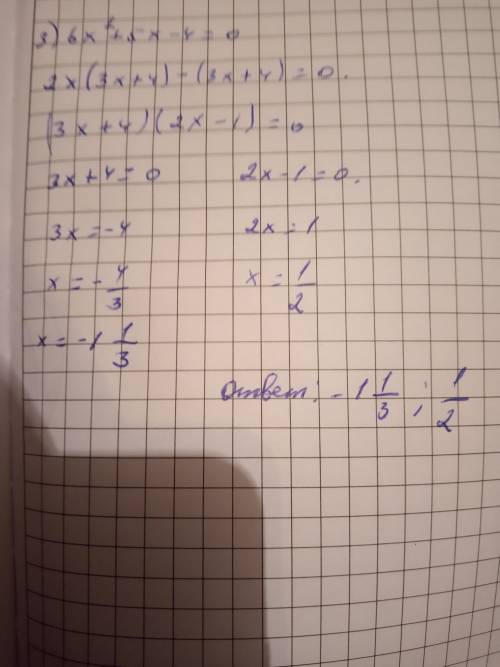 3) 6x²+5x-4=0
2x(3x+4)-(3x+4)=0.
(3x+4)(2x-1)=0
3x+4=0 2x-1=0.
3x=-4 2x=1
x=-4/3 x=1/2
x=-1 1/3
Ответ: -1 1/3 ; 1/2